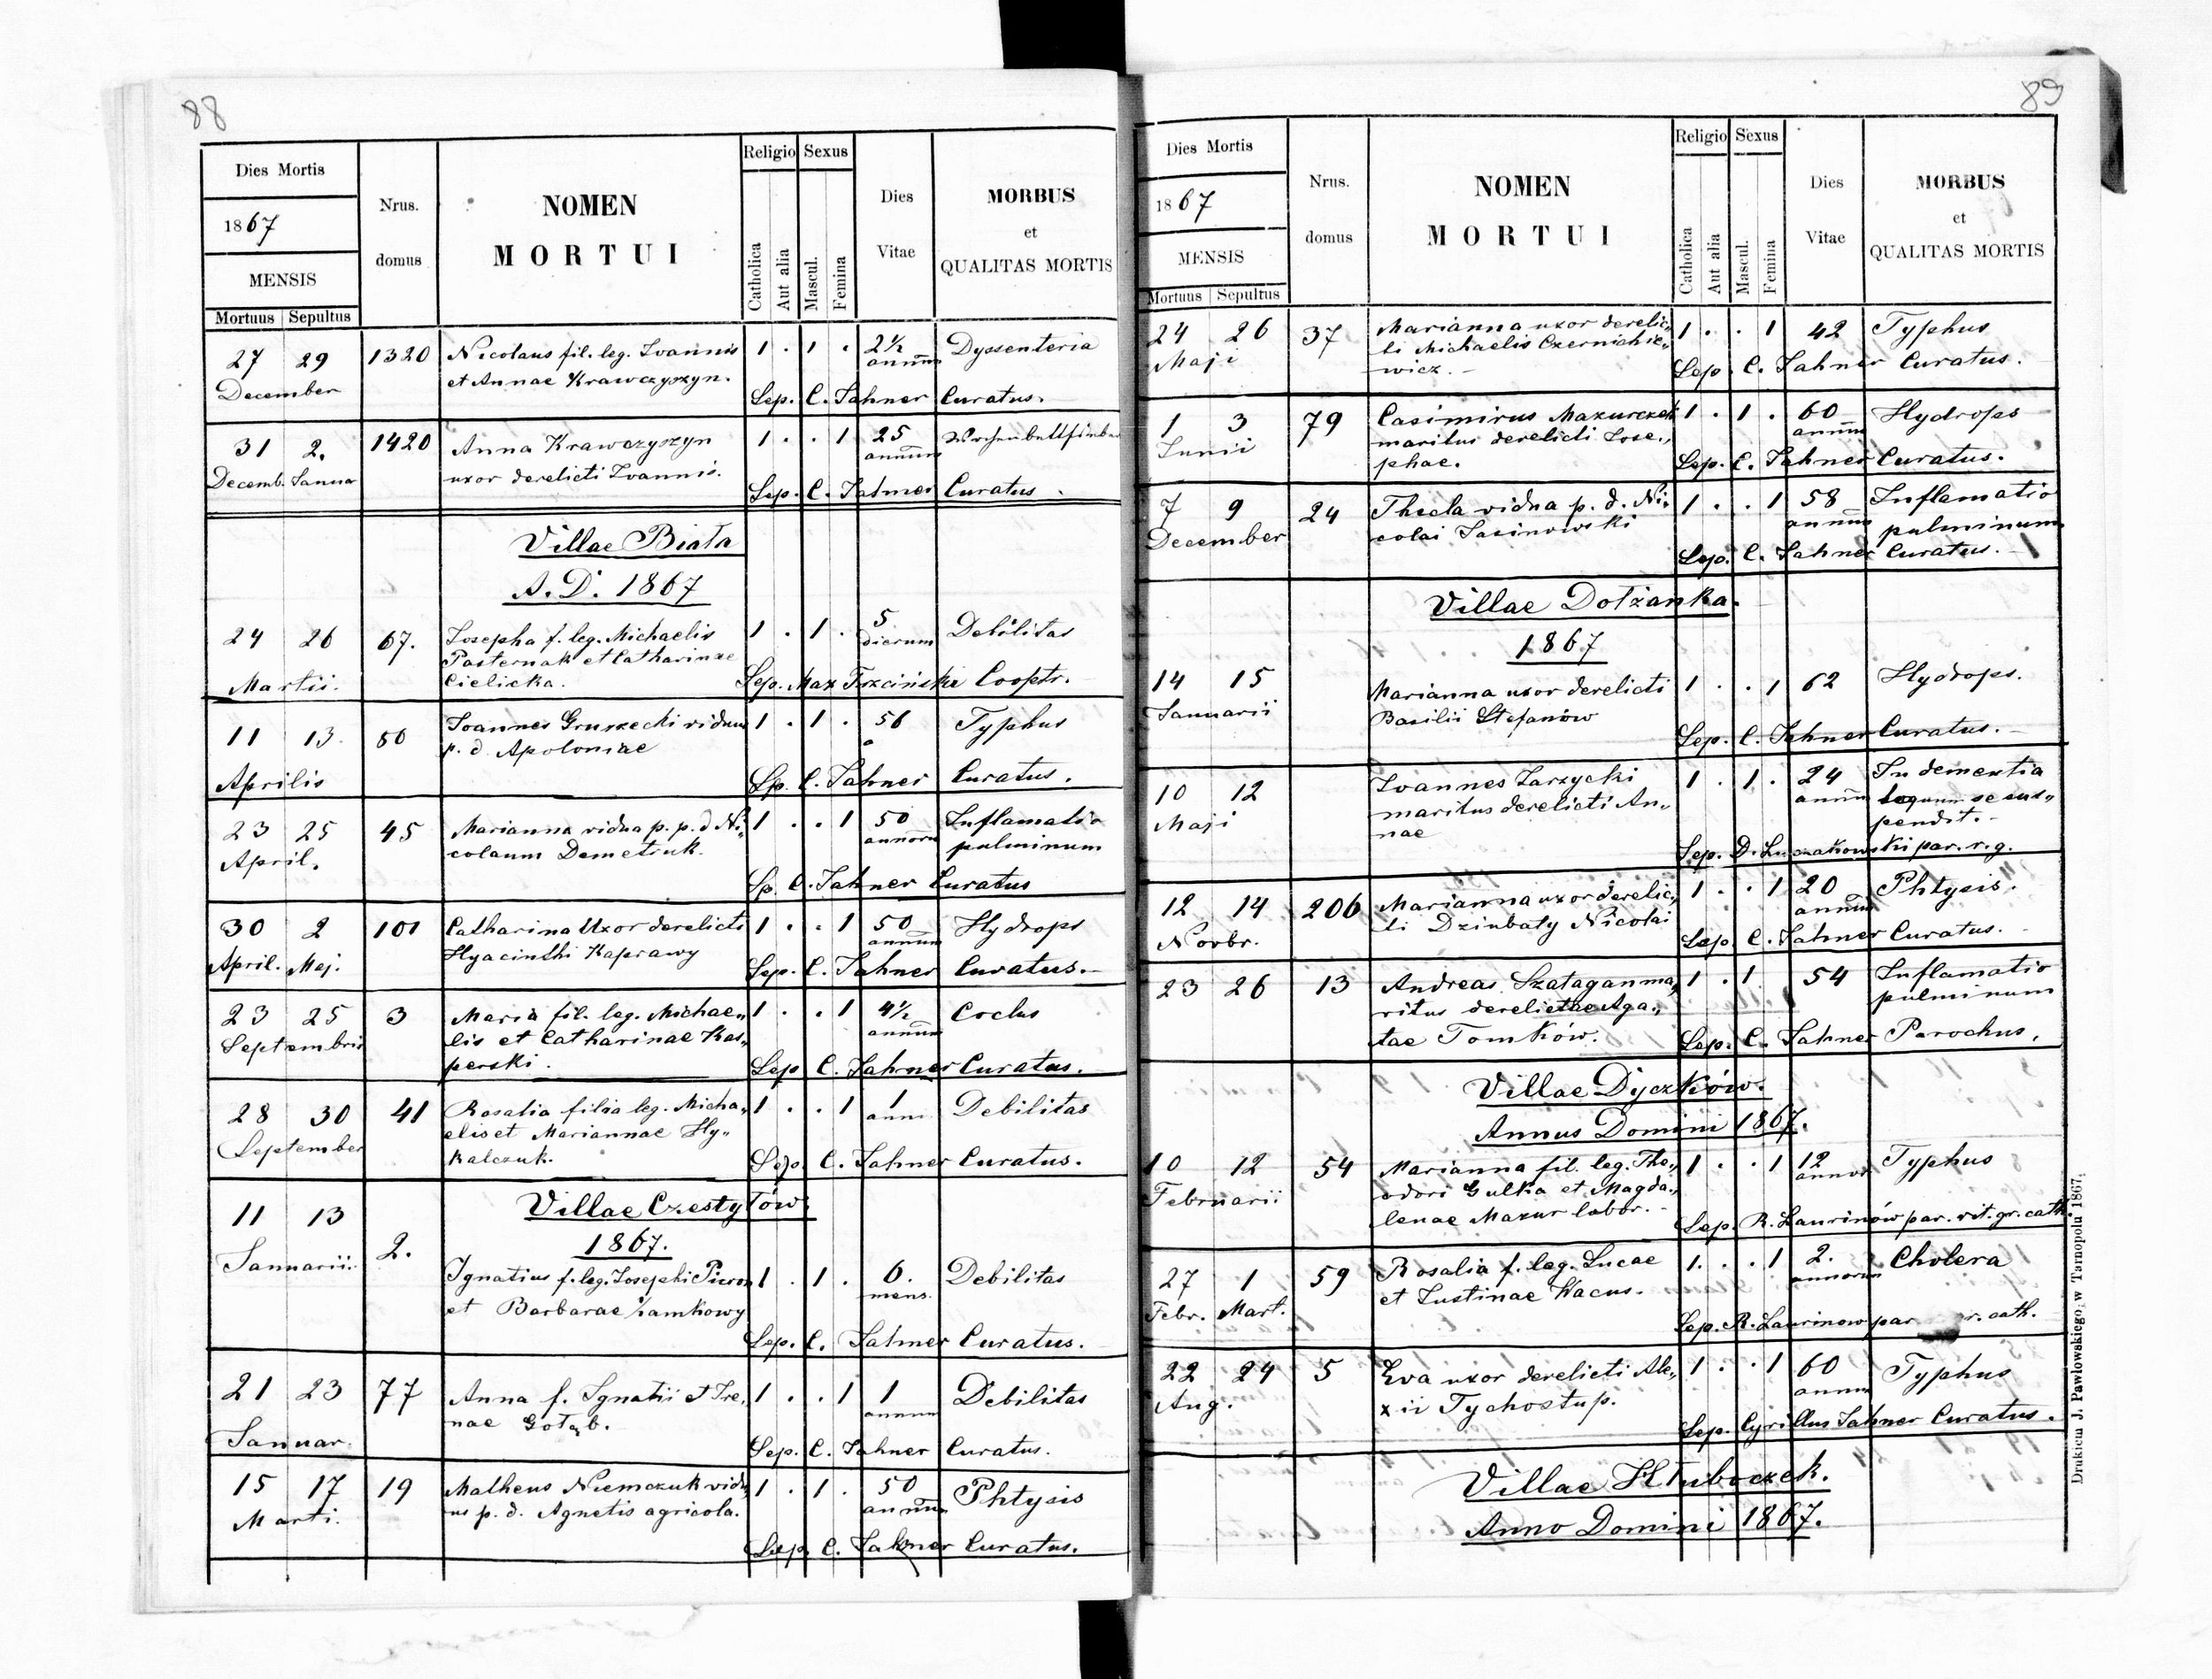 88
Dies Mortis
1867
MENSIS
Mortuus Sepultus
Nrus. domus
NOMEN
MORTUI
Religio
Catholica
Aut alia
Sexus
Mascul.
Femina
Dies
Vitae
MORBUS
et
QUALITAS MORTIS
27 29 1320 Nicolaus fil. leg. Ioannis 1 . 1 . 2½ Dyssenteria
December et Annae Krawczyszyn. annum
Sep. C. Jahner Curatus.
31 2. 1420 Anna Krawczyszyn 1 . . 1 25
Decemb. Janua uxor derelicti Ioannis. annum
Sep. C. Jahner Curatus.
Villae Biała
A.D. 1867
24 26 67. Josepha f. leg. Michaelis 1 . 1 . 5 Debilitas
Pasternak et Catharinae dierum
Martii. Cielicka. Sep. Max Trzciński Cooptr.
11 13. 80 Ioannes Gruszecki viduus 1 . 1 . 56 Typhus
p. d. Apoloniae
Aprilis Sp. C. Jahner Curatus.
23 25 45 Marianna vidua p. p. d Ni, 1 . . 1 50 Inflamatio
April. colaum Demetruk. annoru pulminum
Sp. C. Jahner Curatus
30 2 101 Catharina Uxor derelicti 1 . . 1 50 Hydrops
April. Maj. Hyacinthi Kaprawy annum
Sep. C. Jahner Curatus.
23 25 3 Maria fil. leg. Michae„ 1 . . 1 4½ Coclus
Septembris lis et Catharinae Kas„ annum
perski. Sep C. Jahner Curatus.
28 30 41 Rosalia filia leg. Micha„ 1 . . 1 1 Debilitas
September elis et Mariannae Hy„ anni
kalczuk. Sep. C. Jahner Curatus.
Villae Czestyłów
1867.
11 13 2.
Januarii Ignatius f. leg. Josephi Pieron 1 . 1 . 6. Debilitas
et Barbarae Zamkowy mens.
Sep. C. Jahner Curatus.
21 23 77 Anna f. Ignatii et Ire, 1 . . 1 1 Debilitas
Januar. nae Gołąb. annum
Sep. C. Jahner Curatus.
15 17 19 Matheus Niemczuk vidu, 1 . 1 . 50 Phtysis
Marti. us p. d. Agnetis agricola. annum
Sep. C. Jahner Curatus.
89
Dies Mortis
1867
MENSIS
Mortuus Sepultus
Nrus. domus
NOMEN
MORTUI
Religio
Catholica
Aut alia
Sexus
Mascul.
Femina
Dies
Vitae
MORBUS
et
QUALITAS MORTIS
24 26 37 Marianna uxor derelic, 1 . . 1 42 Typhus
Maji ti Michaelis Czernichie„
wicz. Sep. C. Jahner Curatus.
1 3 79 Casimirus Mazurczak 1 . 1 . 60 Hydrops
Junii maritus derelicti Jose„ annum
phae. Sep. C. Jahner Curatus.
7 9 24 Thecla vidua p. d. Ni, 1 . . 1 58 Inflamatio
December colai Jasinowski annum pulminum
Sep. C. Jahner Curatus.
Villae Dołżanka.
1867
14 15 Marianna uxor derelicti 1 . . 1 62 Hydrops.
Januarii Basilii Stefanów
Sep. C. Jahner Curatus.
10 12 Ioannes Zarzycki 1 . 1 . 24 In dementia
Maji maritus derelicti An„ annum se sus„
nae pendit.
Sep. D. par. r. g.
12 14 206 Marianna uxor derelic, 1 . . 1 20 Phtysis.
Novbr. ti Dzinbaty Nicolai annum
Sep. C. Jahner Curatus.
23 26 13 Andreas Szatagan ma, 1 . 1 54 Inflamatio
ritus derelictae Aga„ pulminum
tae Tomków. Sep. C. Jahner Parochus.
Villae Dyczków.
Annus Domini 1867.
10 12 54 Marianna fil. leg. The„ 1 . . 1 12 Typhus
Februarii odori Gulka et Magda„ annor
lenae Mazur labor. Sep. R. Laurinów par. rit. gr. cath.
27 1 59 Rosalia f. leg. Lucae 1. . . 1 2. Cholera
Febr. Mart. et Justinae Kacus. annorum
Sep. R. Laurinow par r. cath.
22 24 5 Eva uxor derelicti Ale„ 1 . . 1 60 Typhus
Aug. xii Tychostup. annum
Sep. Cyrillus Jahner Curatus.
Villae Hłuboczek.
Anno Domini 1867.
Drukiem J. Pawłowskiego w Tarnopolu 1867.